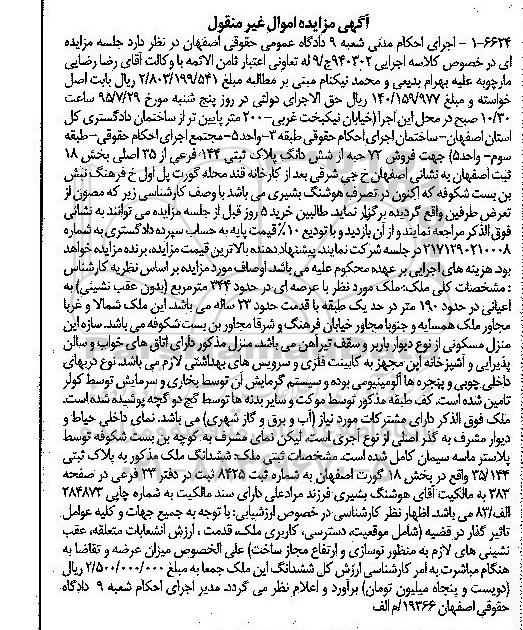 آگهی مزایده اموال غیر منقول
۱-۶۶۲۴ - اجرای احکام مدنی شعبه ۹ دادگاه عمومی حقوقی اصفهان در نظر دارد جلسه مزایده
ای در خصوص کلاسه اجرایی ۹۴۰۳۰۲ج/۹ له تعاونی اعتبار ثامن الائمه با وکالت آقای رضا رضایی
مارچوبه علیه بهرام بدیعی و محمد نیکنام مبنی بر مطالبه مبلغ ۲/۸۰۳/۱۹۹/۵۴۱ ریال بابت اصل
خواسته و مبلغ ۱۴۰/۱۵۹/۹۷۷ ریال حق الاجرای دولتی در روز پنج شنبه مورخ ۹۵/۷/۲۹ ساعت
۱۰/۳۰ صبح در محل این اجرا (خیابان نیکبخت غربی-۲۰۰ متر پایین تر از ساختمان دادگستری کل
استان اصفهان-ساختمان اجرای احکام حقوقی طبقه ۳-واحد ۵-مجتمع اجرای احکام حقوقی-طبقه
سوم- واحد۵) جهت فروش ۷۲ حبه از شش دانگ پلاک ثبتی ۱۴۴ فرعی از ۳۵ اصلی بخش ۱۸
ثبت اصفهان به نشانی اصفهان خ جی شرقی بعد از کارخانه قند محله گورت پل اول خ فرهنگ نبش
بن بست شکوفه که اکنون در تصرف هوشنگ بشیری می باشد با وصف کارشناسی زیر که مصون از
تعرض طرفین واقع گردیده برگزار نماید. طالبین خرید ۵ روز قبل از جلسه مزایده می توانند به نشانی
فوق الذکر مراجعه نمایند و از آن بازدید و با تودیع ۱۰٪ قیمت پایه به حساب سپرده دادگستری به شماره
۲۱۷۱۲۹۰۲۱۰۰۰۸ در جلسه شرکت نمایند. پیشنهاد دهنده بالاترین قیمت مزایده، برنده مزایده خواهد
بود. هزینه های اجرایی بر عهده محکوم علیه می باشد. اوصاف مورد مزایده بر اساس نظریه کارشناس
: مشخصات کلی ملک:ملک مورد نظر با عرصه ای در حدود ۳۴۴ مترمربع (بدون عقب نشینی) به
اعیانی در حدود ۱۹۰ متر در حد یک طبقه با قدمت حدود ۲۳ ساله می باشد. این ملک شمالا و غربا
مجاور ملک همسایه و جنوبا مجاور خیابان فرهنگ و شرقا مجاور بن بست شکوفه می باشد. سازه این
منزل مسکونی از نوع دیوار باربر و سقف تیرآهن می باشد. منزل مذکور دارای اتاق های خواب و سالن
پذیرایی و آشپزخانه اپن مجهز به کابینت فلزی و سرویس های بهداشتی لازم می باشد. نوع دربهای
داخلی چوبی و پنجره ها آلومینیومی بوده و سیستم گرمایش آن توسط بخاری و سرمایش توسط کولر
تامین شده است. کف طبقه مذکور توسط موکت و سایر بدنه ها توسط گچ دو گچه پوشیده شده است.
ملک فوق الذکر دارای مشترکات مورد نیاز (آب و برق و گاز شهری) می باشد. نمای داخلی حیاط و
دیوار مشرف به گذر اصلی از نوع آجری است. لیکن نمای مشرف به کوچه بن بست شکوفه توسط
پلاستر ماسه سیمان کامل شده است. مشخصات ثبتی ملک: ششدانگ ملک مذکور به پلاک ثبتی
۳۵/۱۴۴ واقع در بخش ۱۸ گورت اصفهان به شماره ثبت ۸۴۲۵ ثبت در دفتر ۳۳ فرعی در صفحه
۳۸۳ به مالکیت آقای هوشنگ بشیری فرزند مرادعلی دارای سند مالکیت به شماره چاپی ۲۸۴۸۷۳
الف/۸۳ می باشد. اظهار نظر کارشناسی در خصوص ارزشیابی: با توجه به جمیع جهات و کلیه عوامل
تاثیر گذار در قضیه (شامل موقعیت، دسترسی، کاربری ملک، قدمت ، ارزش انشعابات متعلقه، عقب
نشینی های لازم به منظور نوسازی و ارتفاع مجاز ساخت) علی الخصوص میزان عرضه و تقاضا به
هنگام مباشرت به امر کارشناسی ارزش کل ششدانگ این ملک جمعا به مبلغ ۲/۵۰۰/۰۰۰/۰۰۰ ریال
(دویست و پنجاه میلیون تومان) برآورد و اعلام نظر می گردد. مدیر اجرای احکام شعبه ۹ دادگاه
حقوقی اصفهان ۱۹۳۶۶/م الف